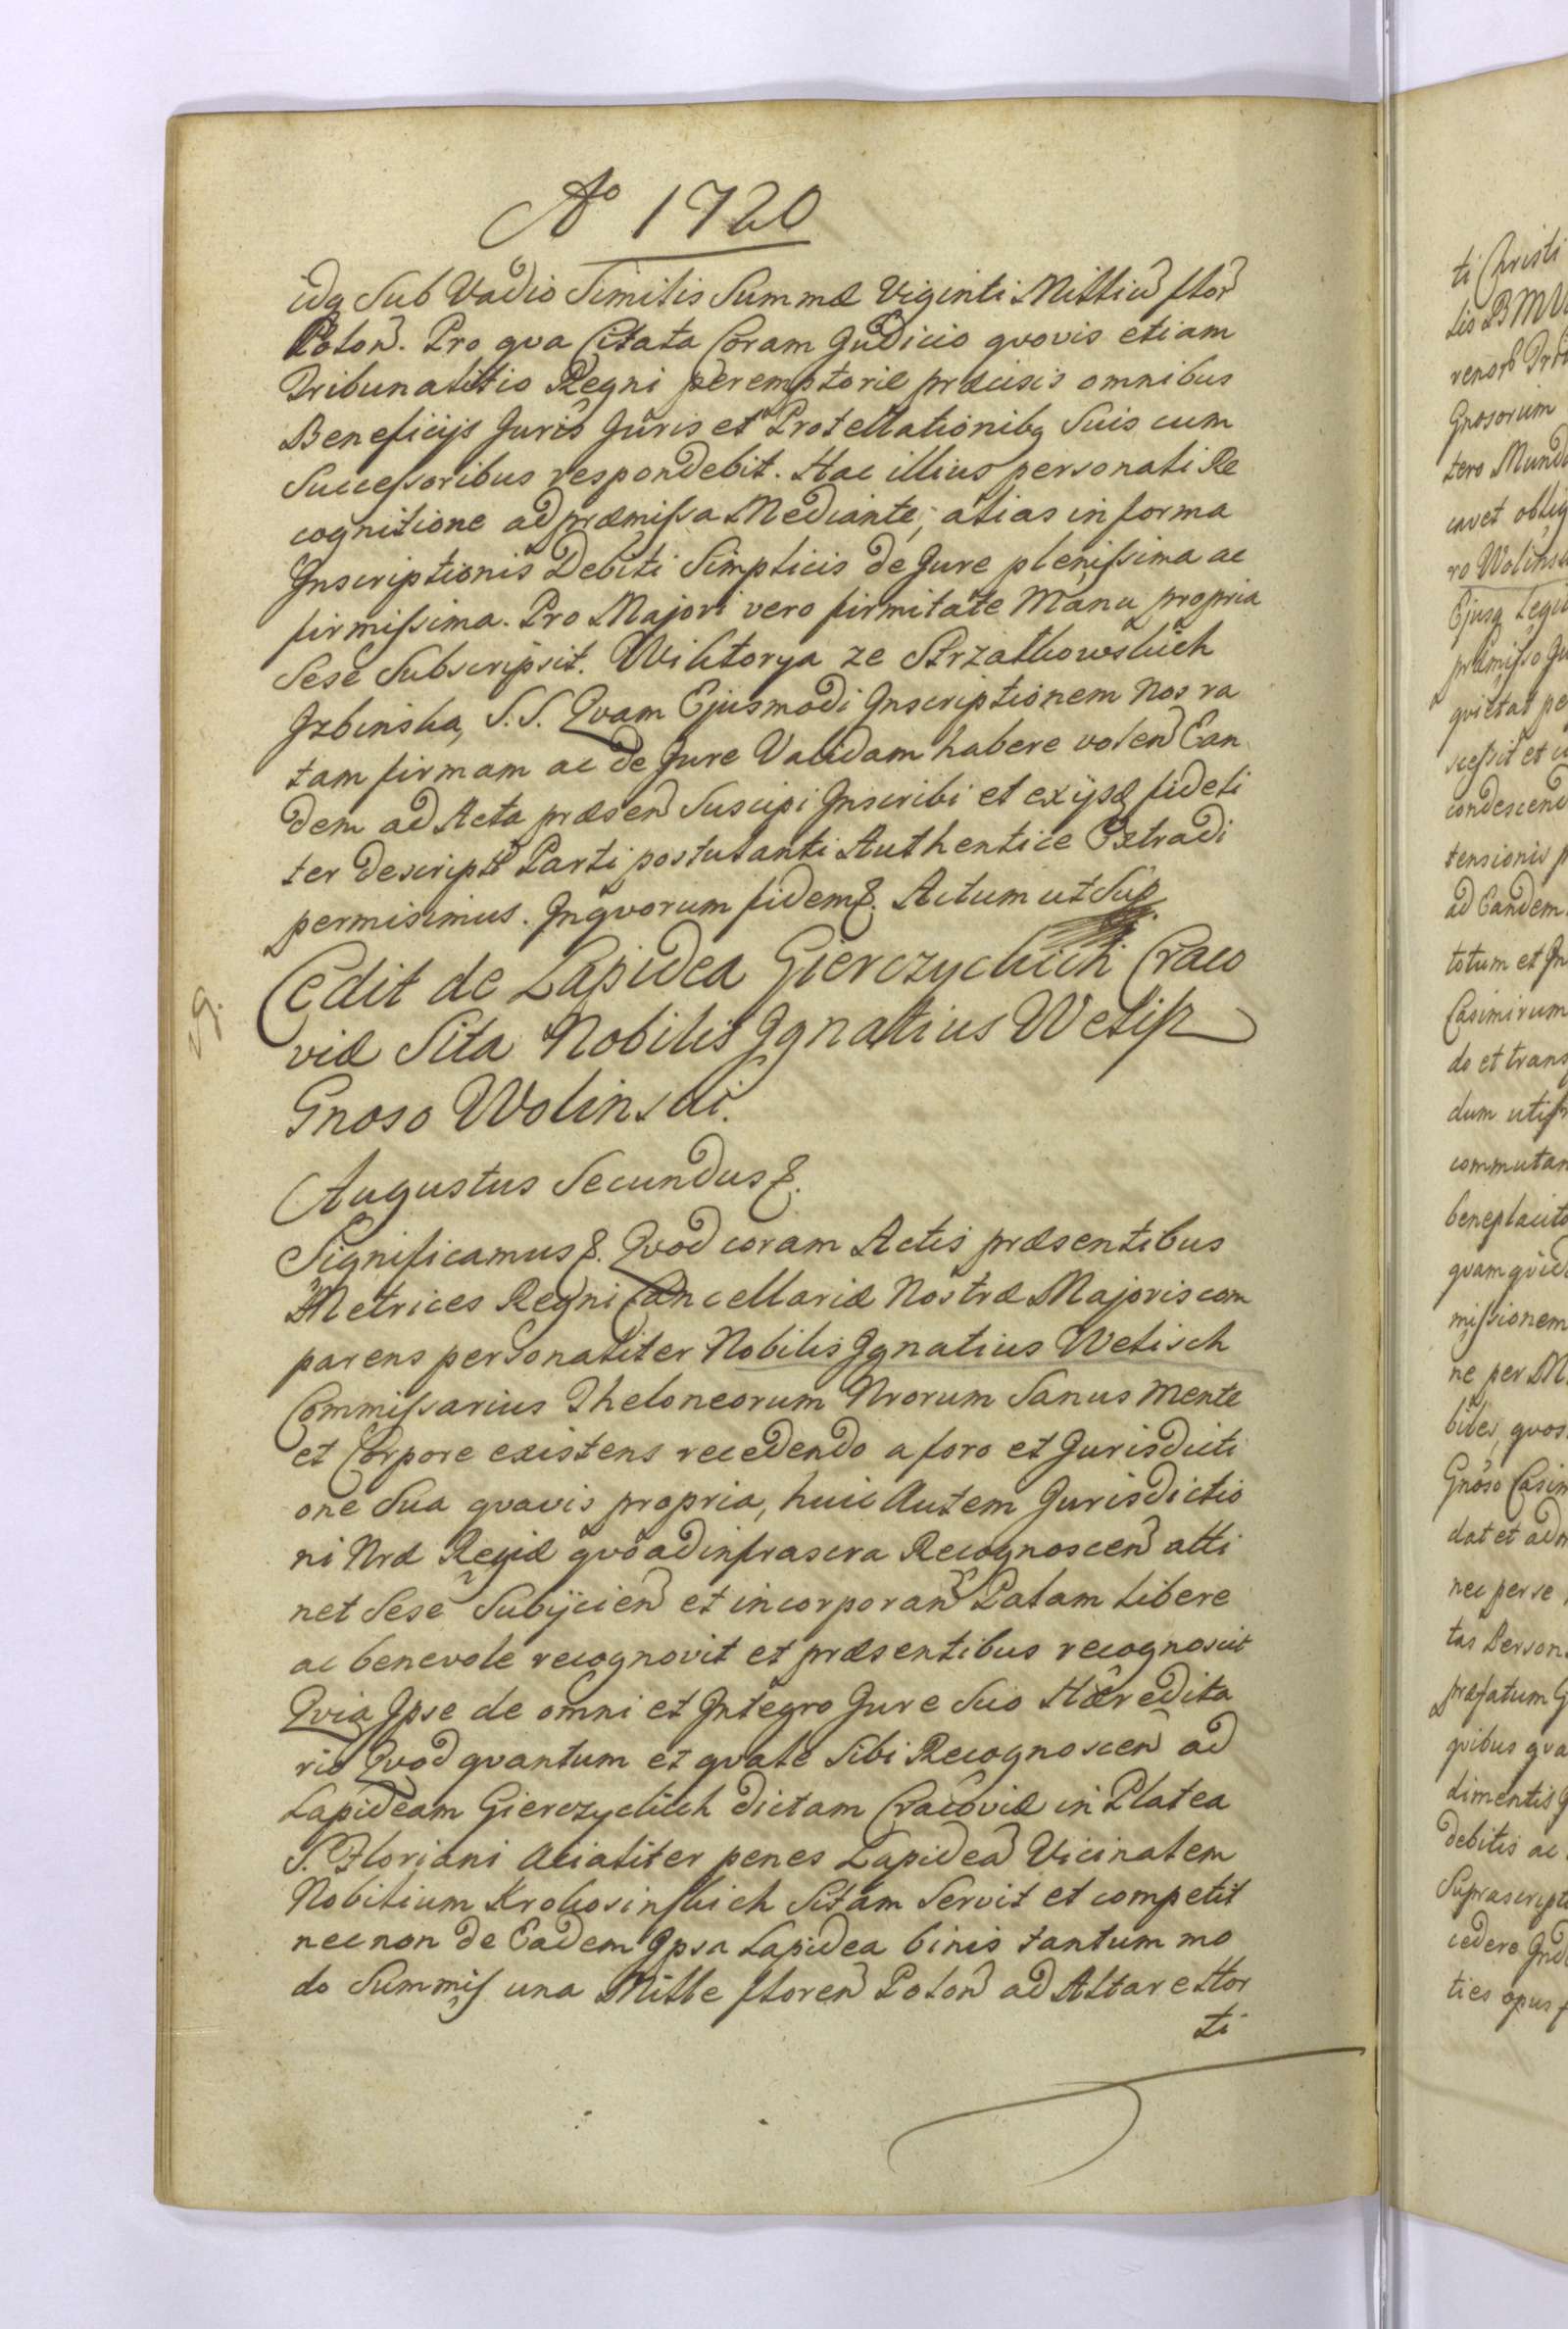 Ao 1720
idq Sub Vadio Similis Summæ Viginti Milliu flor
Polon. Pro qva Citata Coram Judicio qvovis etiam
Tribunalitio Regni peremptorie præcisis omnibus
Beneficijs Juris Juris et Protellationibq Suis cum
Successoribus respondebit. Hac illius personali Re
cognitione ad præmissa Mediante, alias in forma
Inscriptionis Debiti Simplicis de Jure plenissima ac
firmissima. Pro Majori vero firmitate Manu propria
Sese Subscripsit. Wiktorya ze Strzałkowskich
Izbinska, S. S. Qvam Ejusmodi Inscriptionem Nos ra
tam firmam ac de Jure Validam habere volen Ean
dem ad Acta præsen Suscipi Inscribi et ex ijsq fideli
ter descript Parti postulanti Authentice Extradi
permisimus. In qvorum fidem &. Actum ut Sup.
Cedit de Lapidea Gierczyckich Craco
viæ Sita Nobilis Ignatius Welisz
Gnoso Wolinski.
Augustus Secundus &.
Significamus &. Qvod coram Actis præsentibus
Metrices Regni Cancellariæ Nostræ Majoris com
parens personaliter Nobilis Ignatius Welisch
Commissarius Theloneorum Nrorum Sanus mente
et Corpore existens recedendo a foro et Jurisdicti
one Sua qvavis propria, huic Autem Jurisdictio
ni Nræ Regiæ qvo ad infrascra Recognoscen atti
net Sese Subijcien et incorporan Palam libere
ac benevole recognovit et præsentibus recognoscit
Qvia Ipse de omni et Integro Jure Suo Hæredita
rio Qvod qvantum et qvale Sibi Recognoscen ad
Lapideam Gierczyckich dictam Cracoviæ in Platea
S. Floriani Acialiter penes Lapidea Vicinalem
Nobilium Krokosinskich Sitam Servit et competit
nec non de Eadem Ipsa Lapidea binis tantum mo
do Summis una Mille floren Polon ad Altare Hor
ti
ti Christi
lis BMV
Gnosorum
tero Mund
cavet oblig
ro Wolinsk
Ejusq legit
præmisso Ju
qvietat pe
scessit et
condescend
tensionis p
ad Eandem
totum et In
Casimirum
do et trans
dum utif
commutan
beneplacito
qvam qvid
missionem
ne per M
biles, qvos
Gnoso Casim
dat et adm
nec per se
tas Person
præfatum G
qvibus qva
dimentis
debitis ac
Suprascript
cedere
ties opus f